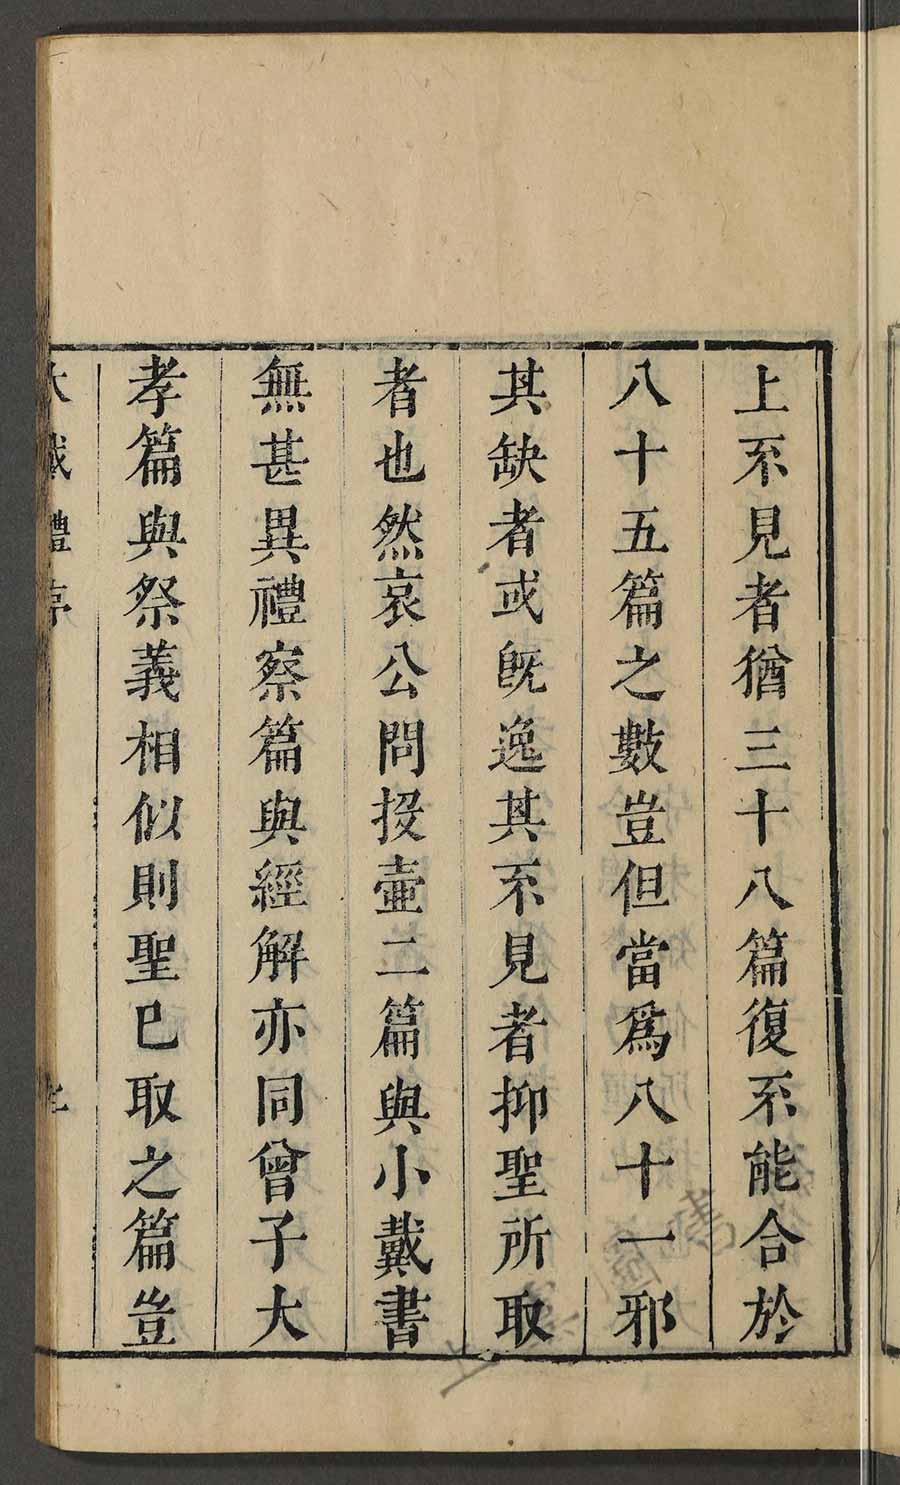 上不見者猶三十八篇復不能合於
八十五篇之數豈但當爲八十一邪
其缺者或旣逸其不見者抑聖所取
者也然哀公問投壷二篇與小戴書
無甚異禮察篇與經解亦同曾子大
孝篇與祭義相似則聖已取之篇豈
大戴禮序